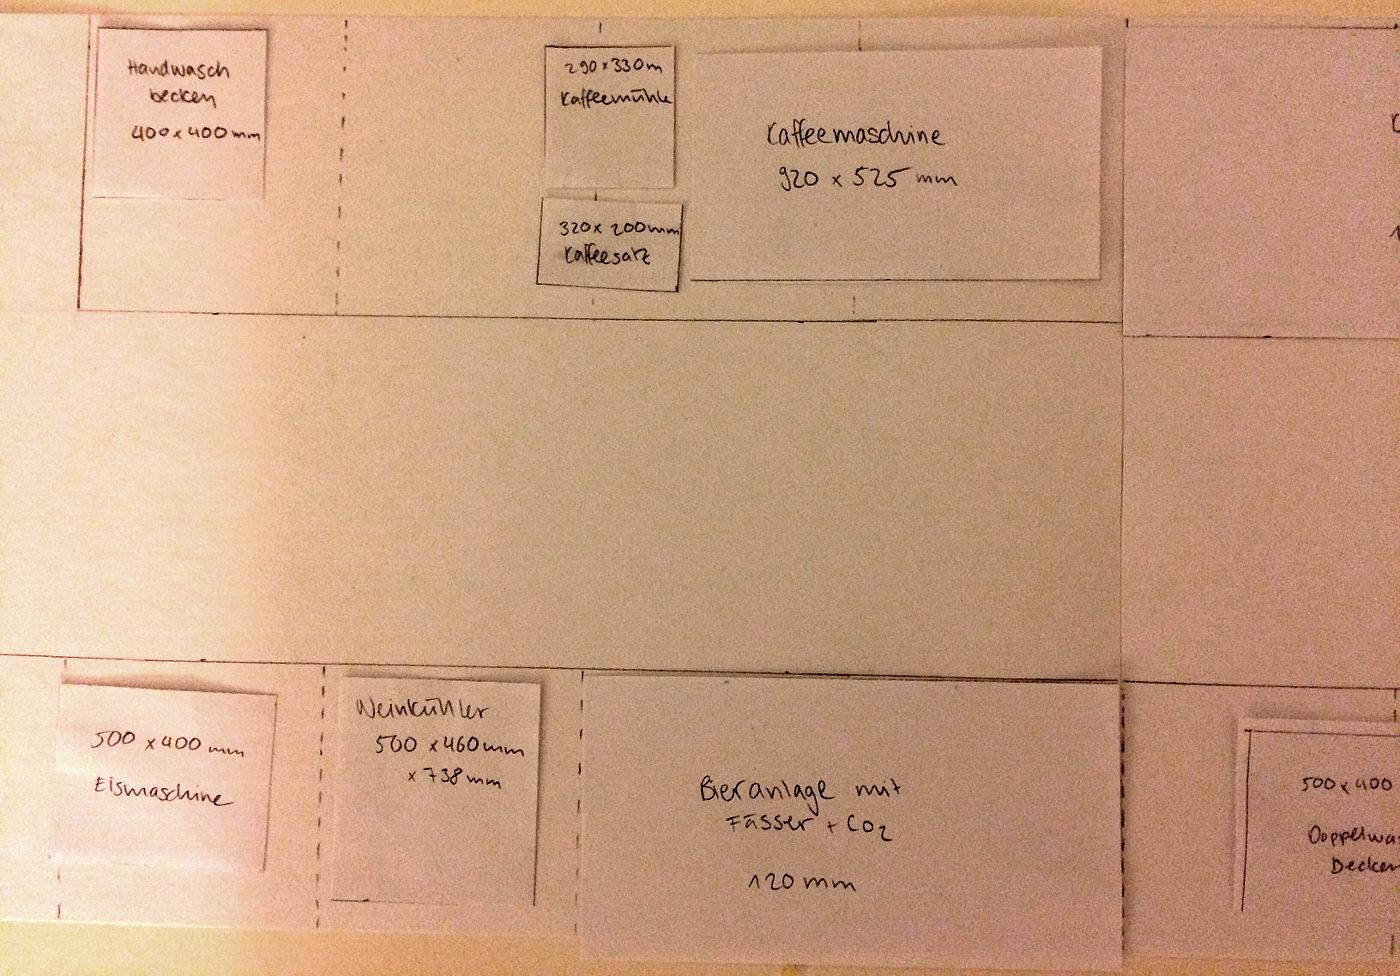 Handwasch
becken
400 x 400 mm
290 x 330 m
Kaffeemühle
320 x 200 mm
Kaffeesatz
Kaffeemaschine
920 x 525 mm
500 x 400 mm
Eismaschine
Weinkühler
500 x 460 mm
x 738 mm
Bieranlage mit
Fässer + CO2
120 mm
500 x 400
Doppelwas
Becken